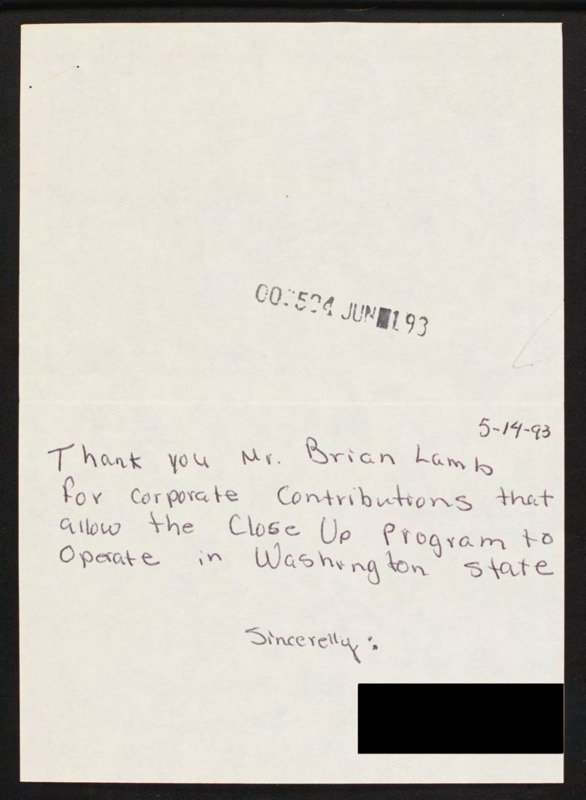 JUN 1 93
5-14-93
Thank you Mr. Brian Lamb
for corporate contributions that
allow the Close Up Program to
Operate in Washington state
Sincerelly: